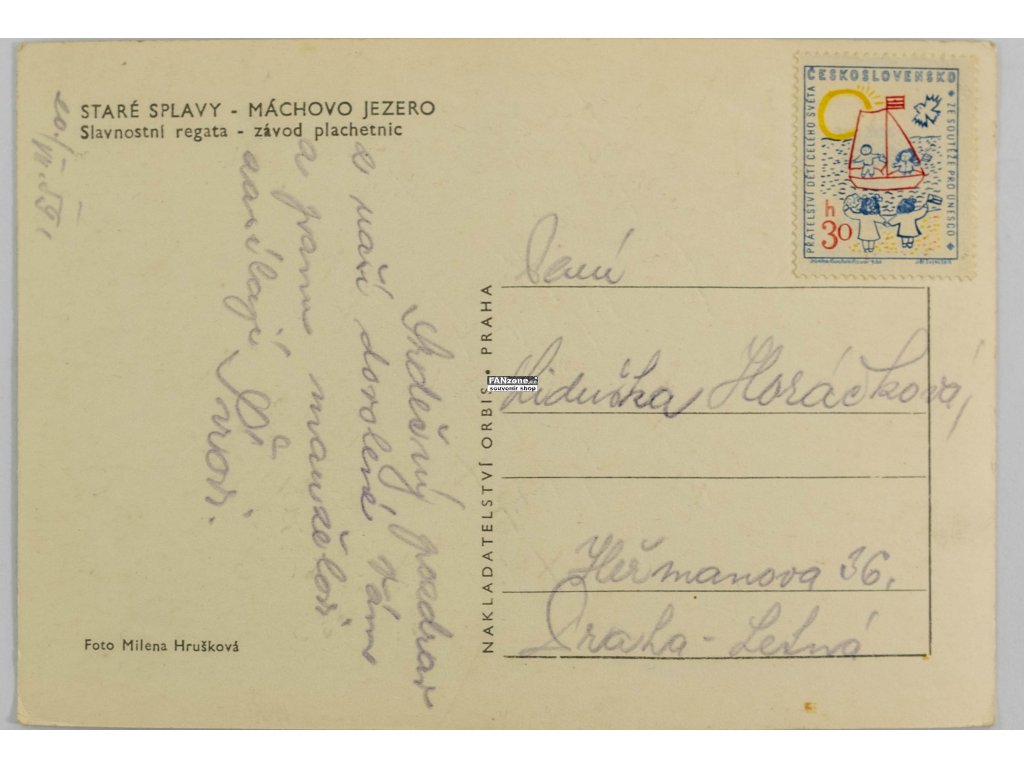 STARÉ SPLAVY - MÁCHOVO JEZERO
Slavnostní regata - závod plachetnic
20/VII.59.
Srdečný pozdrav
z naší dovolené, Vám
a panu manželovi
zasílají
ČESKOSLOVENSKO
PŘÁTELSTVÍ DĚTÍ CELÉHO SVĚTA
ZE SOUTĚŽE PRO UNESCO
h
30
Paní
Liduška Horáčková,
Heřmanova 36.
Praha - Letná
NAKLADATELSTVÍ ORBIS • PRAHA
FANzone.cz
souvenir shop
Foto Milena Hrušková